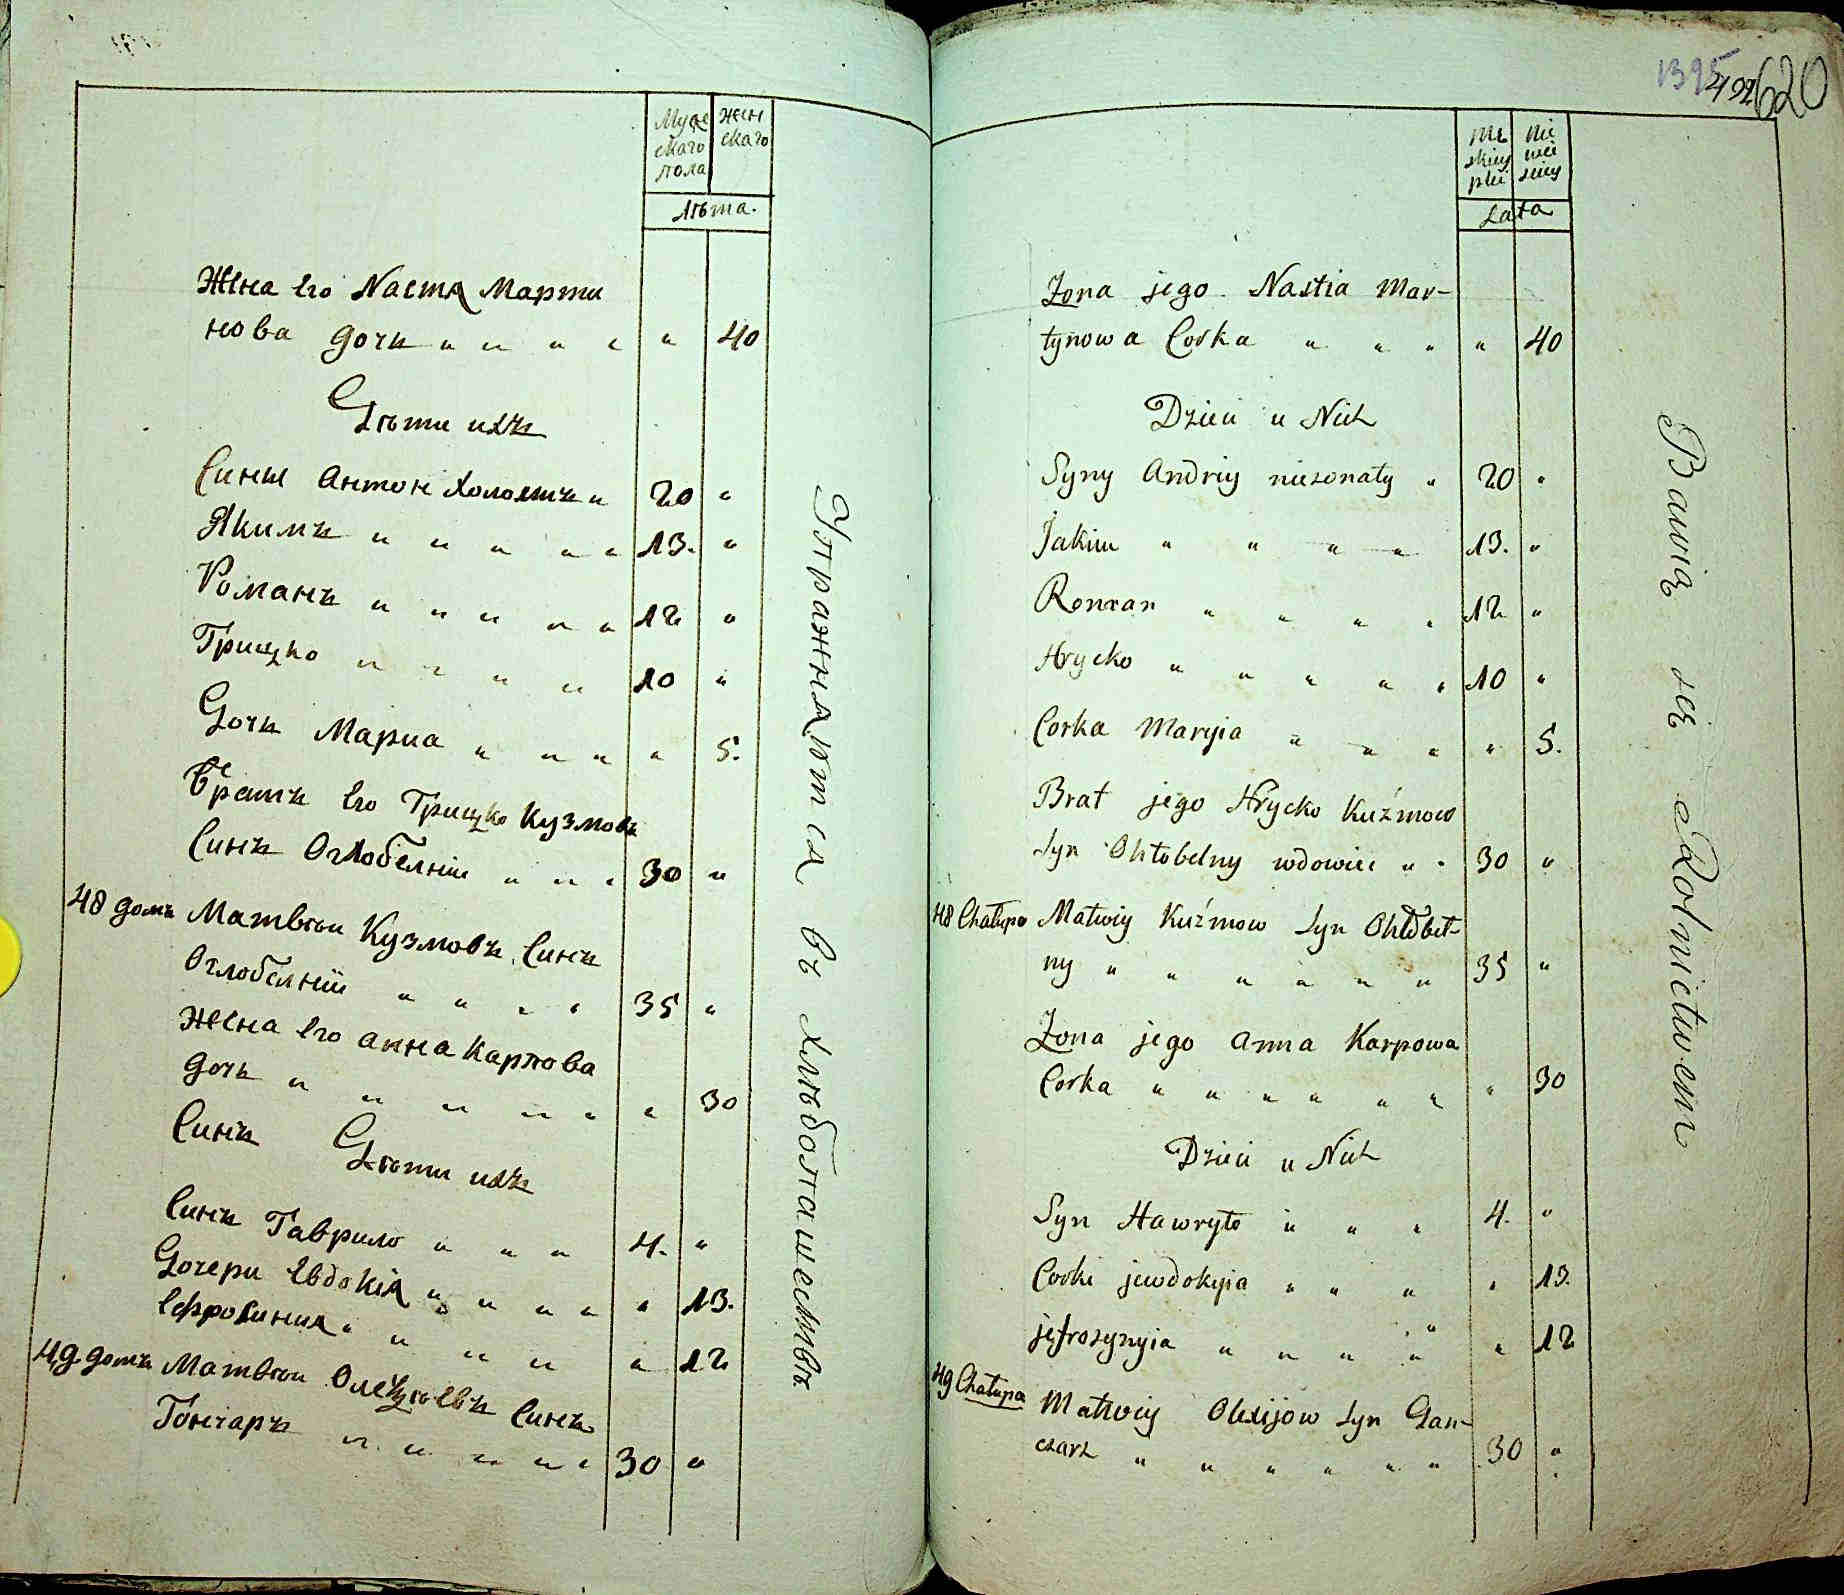 Муже
скаго
пола
жен
скаго
лѣта.
Жена его Nастя Марти
нова дочь " " " " " 40
Дѣти ихъ
Сины Антон холостъ " 20 "
Якимъ " " " " " 13. "
Романъ " " " " " 12 "
Грицко " " " " 10 "
Дочь Мариа " " " " " 5.
Братъ его Грицко Кузмовъ
Синъ Оглобелній " " " 30 "
48 домъ Матвѣи Кузмовъ Синъ
Оглобелній " " " " 35 "
Жена его Анна Карпова
дочь " " " " " " 30
Синъ Дѣти ихъ
Синъ Гаврило " " " 4. "
Дочери Евдокія " " " " " 13.
Ефросиния " " " " " 12
49 домъ Матвѣи Олеѯѣевъ Синъ
Гончаръ " " " " " 30 "
Упражняются въ хлѣбопашествѣ
1395
492
620
Mę
skiey
płci
Nie
wie
sciey
Lata
Zona jego Nastia Mar-
tynowa Corka " " " " 40
Dzieci u Nich
Syny Andriy niezonaty " 20 "
Jakim " " " " 13. "
Roman " " " " 12 "
Hrycko " " " " " 10 "
Corka Maryia " " " " 5.
Brat jego Hrycko Kuźmow
Syn Ohłobelny wdowiec " " 30 "
48 Chałupa Matwiy Kuźmow Syn Ohłobel-
ny " " " " " " 35 "
Zona jego Anna Karpowa
Corka " " " " " " " 30
Dzieci u Nich
Syn Hawryło " " " 4. "
Corki jewdokyia " " " " 13.
jefrosynyia " " " " " 12
49 Chałupa Matwiy Olexijow Syn Gan-
czarz " " " " " " 30 "
Bawią się Rolnictwem